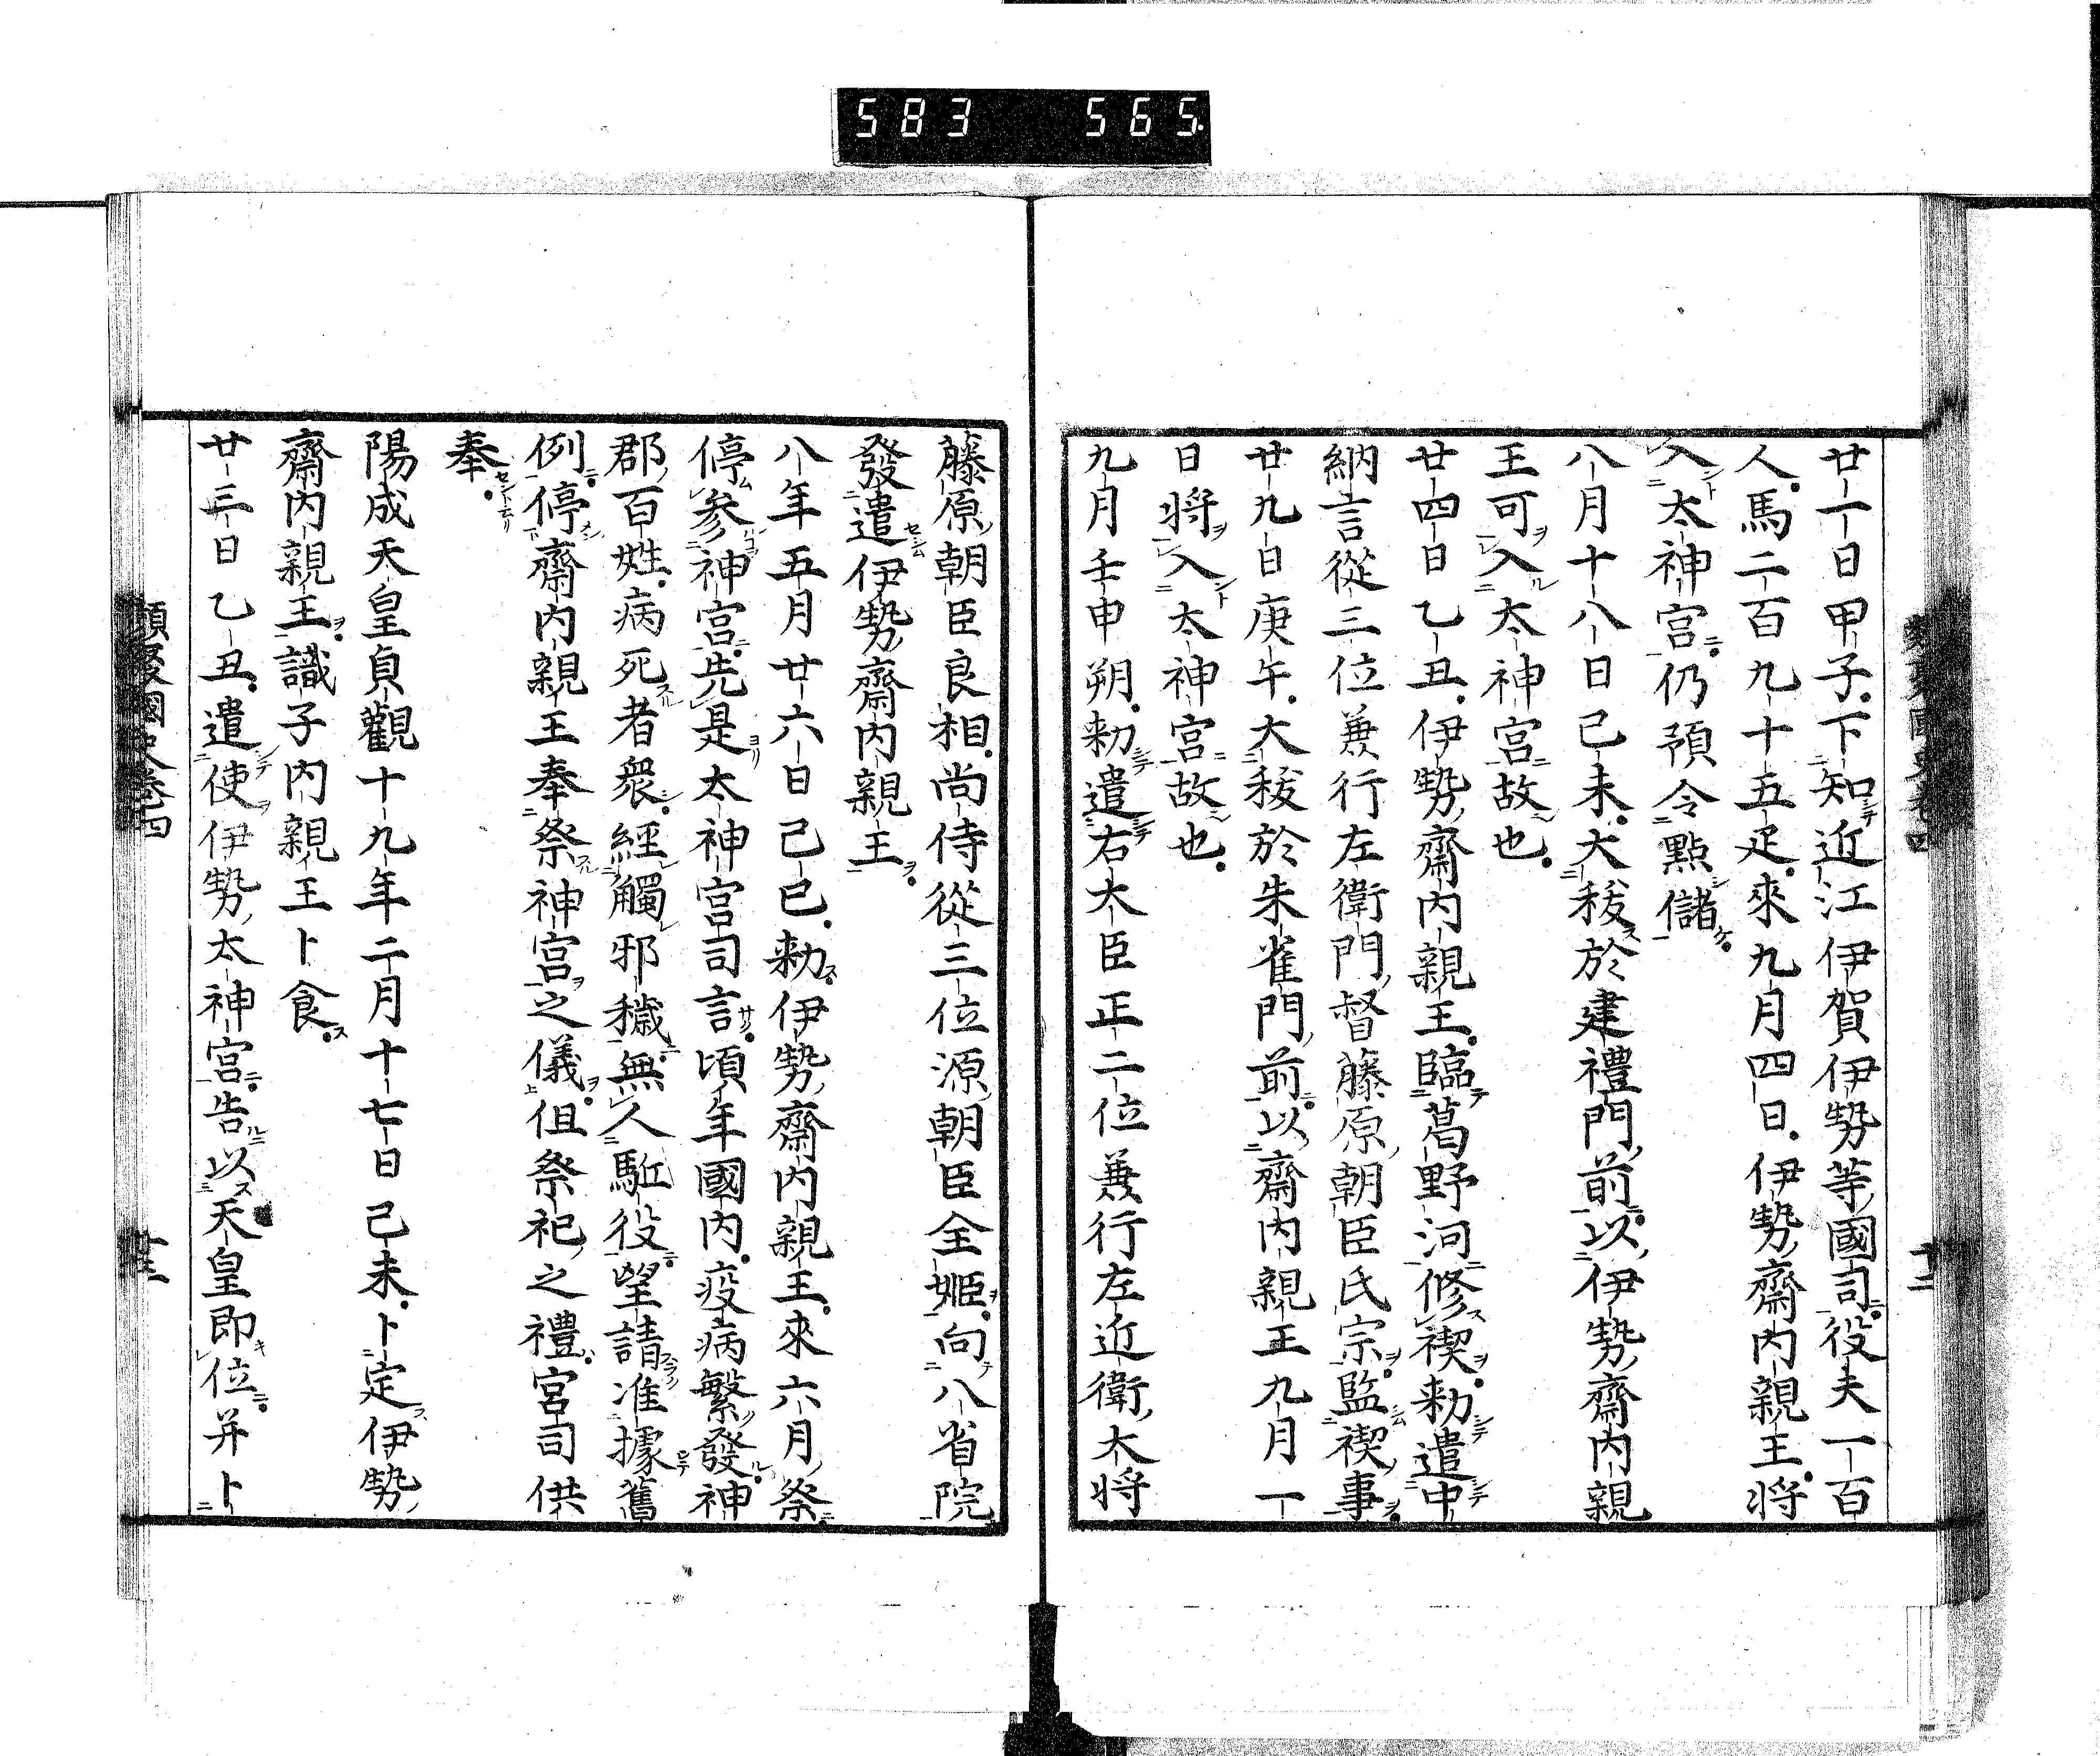 583 565
廿一日甲子下知近江伊賀伊勢等國司役夫一百
人馬二百九十五疋來九月四日伊勢齋內親王將
入太神宮仍預令點儲
八月十八日己未大秡於建禮門前以伊勢齋內親
王可入太神宮故也
廿四日乙丑伊勢齋內親王臨葛野河修禊勅遣中
納言從三位兼行左衛門督藤原朝臣氏宗監禊事
廿九日庚午大秡於朱雀門前以齋內親王九月一
日將入太神宮故也
九月壬申朔勅遣右大臣正二位兼行左近衛大將
藤原朝臣良相尚侍從三位源朝臣全姬向八省院
發遣伊勢齋內親王
八年五月廿六日己巳勅伊勢齋內親王來六月祭
停參神宮先是太神宮司言頃年國內疫病繁發神
郡百姓病死者衆經觸邪穢無人駈役望請准據舊
例停齋內親王奉祭神宮之儀但祭祀之禮宮司供
奉
陽成天皇貞觀十九年二月十七日己未卜定伊勢
齋內親王識子內親王卜食
廿三日乙丑遣使伊勢太神宮告以天皇即位并卜
類聚國史卷四